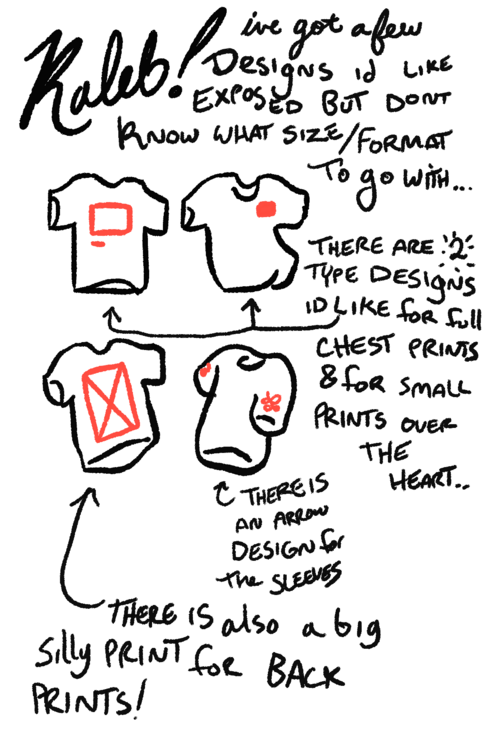 Kaleb! ive got a few
Designs id LIKE
EXPOSED BUT DONT
KNOW WHAT SIZE/FORMAT
To go WITH...
THERE ARE 2
TYPE DESIGNS
ID LIKE for full
CHEST PRINTS
& for SMALL
PRINTS OVER
THE
HEART..
THERE IS
AN ARROW
DESIGN for
the SLEEVES
THERE IS also a big
Silly PRINT for BACK
PRINTS!